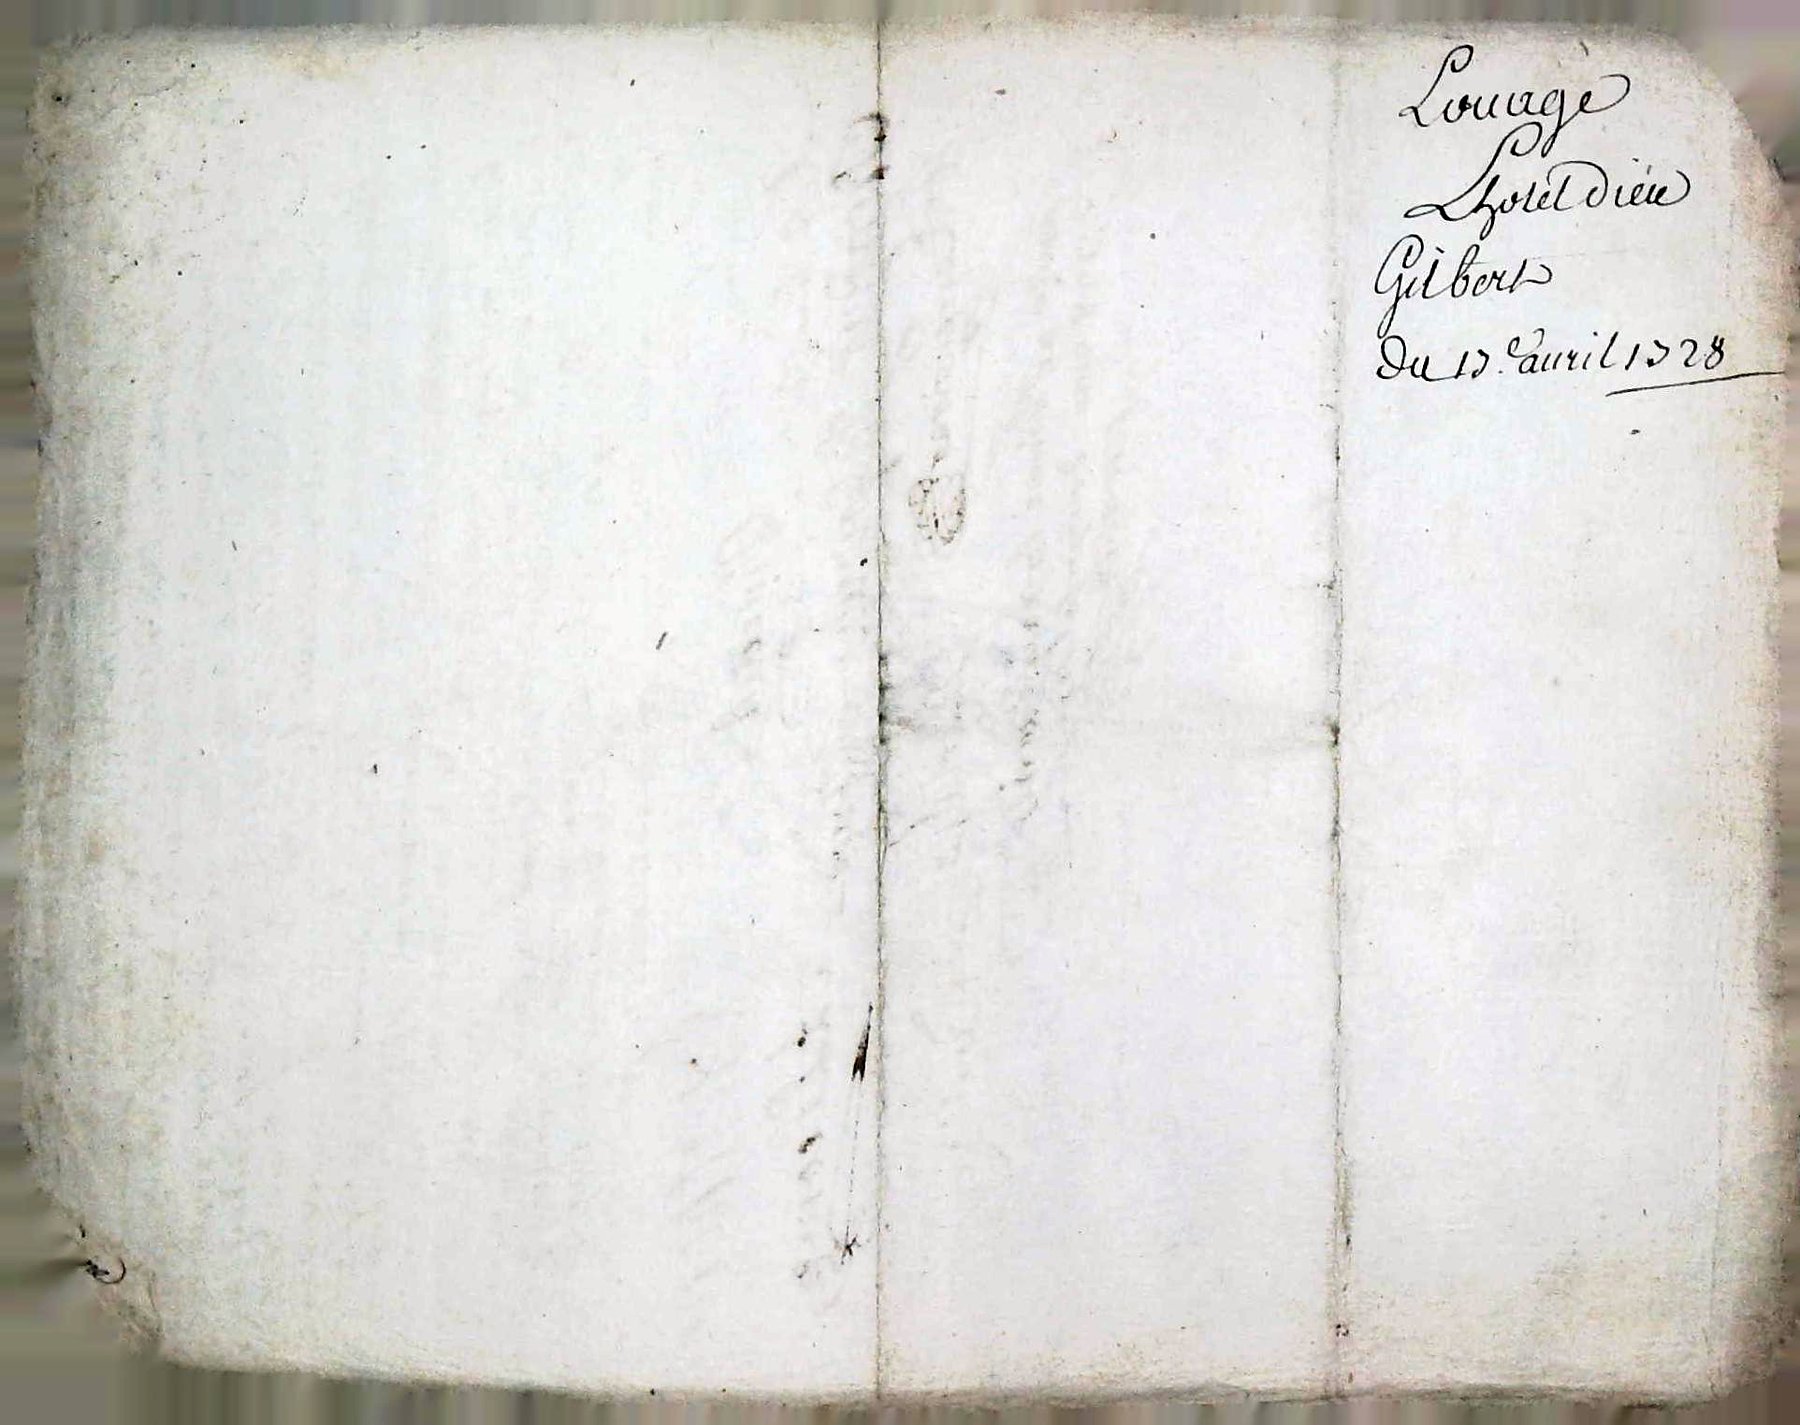 Louage
Lhotel dieu
Gilbert
Du 17.e auril 1728